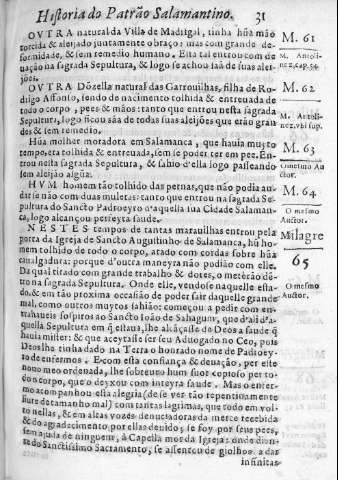 Historia do Patrão Salamantino. 31
OVTRA natural da Villa de Madrigal, tinha hũa mão
torcida & aleijado juntamente o braço: mas com grande de-
formidade, & sem remedio humano. Esta tal entrou com de
uação na sagrada Sepultura, & logo se achou sãa de suas alei-
jões.
OVTRA Dõzella natural das Garrouilhas, filha de Ro-
drigo Affonso, sendo do nacimento tolhida & entreuada de
todo o corpo, pees & mãos: tanto que entrou nesta sagrada
Sepultura, logo ficou sãa de todas suas aleijões que erão gran
des & sem remedio.
Hũa molher moradora em Salamanca, que hauia muyto
tempo, era tolhida & entreuada, sem se poder ter em pee. En
trou nesta sagrada Sepultura, & sahio d'ella logo passeando
sem aleijão algũa.
HVM homem tão tolhido das pernas, que não podia an-
dar se não com duas muletas: tanto que entrou na sagrada Se-
pultura do Sancto Padroeyro d'aquella sua Cidade Salaman-
ca, logo alcançou perfeyta saude.
NESTES tempos de tantas marauilhas entrou pela
porta da Igreja de Sancto Augustinho de Salamanca, hũ ho-
nem tolhido de todo o corpo, atado com cordas sobre hũa
caualgadura: porque d'outra maneyra não podião com elle.
Da qual tirado com grande trabalho & dores, o meterão dẽ-
tro na sagrada Sepultura. Onde elle, vendose naquelle esta-
do, & em tão proxima occasião de poder sair daquelle grande
mal, como outros muytos sahião: começou a pedir com en-
tranhaueis sospiros ao Sancto Ioão de Sahagum, que d'ali d'a-
quella Sepultura em q̃ estaua, lhe alcãçasse de Deos a saude q̃
hauia mister: & que aceytasse ser seu Aduogado no Ceo, pois
Deos lhe tinha dado na Terra o honrado nome de Padroey-
ro de enfermos. E com esta confiança & deuação, per este
nouo meo ordenada, lhe sobreueo hum suor copioso per to-
do o corpo, que o deyxou com inteyra saude. Mas o enter-
mo acompanhou esta alegria (de se ver tão repentinamente
liure de tamanho mal) com tantas lagrimas, que todo em vol-
to nellas, & em altas vozes denunciadoras da merce recebida
& do agradecimento por ellas deuido; se foy por seus pees,
sem ajuda de ninguem, à Capella mor da Igreja: onde dian-
te do Sanctissimo Sacramento, se assentou de giolhos a dar
infinitas
M. 61
M. Antoli-
nez, cap. 54.
M. 62
M. Antoli-
nez, vbi sup.
M. 63
O mesmo Au
ctor.
M. 64
O mesmo
Auctor.
Milagre
65
O mesmo
Auctor.